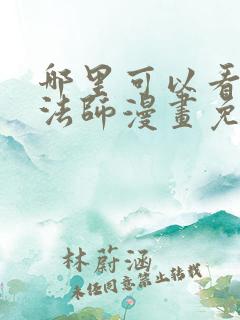 哪里可以看
法师漫畫免
林蔚涵
未经同意禁止转载